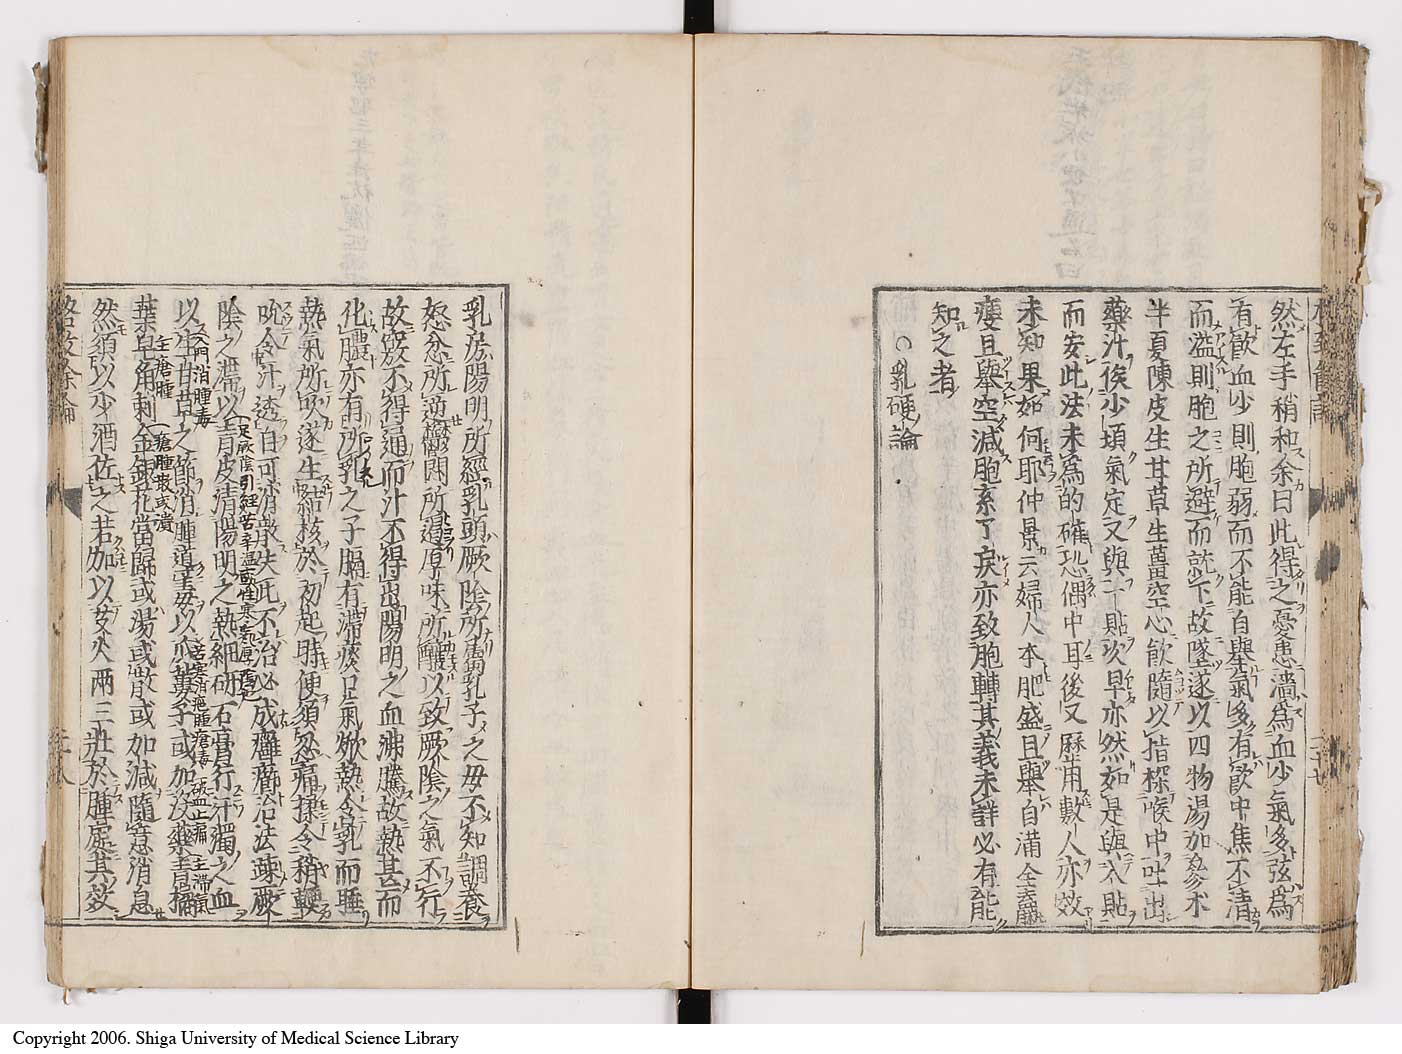 然左手稍和余曰此得之憂患濇為血少氣多弦為
有飲血少則胞弱而不能自舉氣多有飲中焦不清
而溢則胞之所避而就下故墜遂以四物湯加參朮
半夏陳皮生甘草生薑空心飲隨以指探喉中吐出
藥汁俟少頃氣定又與一貼次早亦然如是與八貼
而安此法未為的確恐偶中耳後又歷用數人亦效
未知果如何耶仲景云婦人本肥盛且舉自滿全羸
瘦且舉空減胞系了戾亦致胞轉其義未詳必有能
知之者
○乳硬論
乳房陽明所經乳頭厥陰所屬乳子之母不知調養
怒忿所逆鬱悶所遏厚味所釀以致厥陰之氣不行
故竅不得通而汁不得出陽明之血沸騰故熱甚而
化膿亦有所乳之子膈有滯痰口氣焮熱含乳而睡
熱氣所吹遂生結核於初起時便須忍痛揉令稍軟
吮令汁透自可消散失此不治必成癰癤治法疎厥
陰之滯以青皮清陽明之熱細研石膏行汗濁之血
以生甘草之節消腫導毒以瓜蔞子或加沒藥青橘
葉皂角刺金銀花當歸或湯或散或加減隨意消息
然須以少酒佐之若加以艾火兩三壯於腫處其效
格致餘論
入門消腫毒
足厥陰引經苦辛溫或性寒氣厚
主瘡腫
瘡腫散或潰
苦寒消
腫瘡毒
破血止
主滯氣
Copyright 2006. Shiga University of Medical Science Library